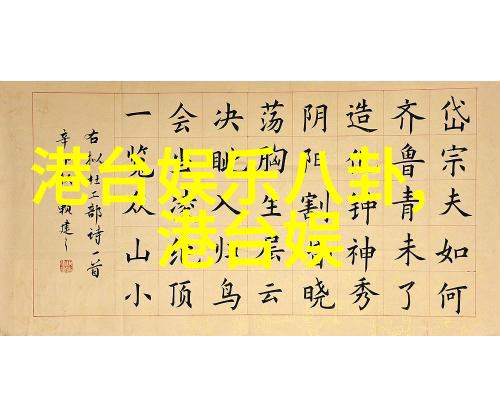 港台娱乐八卦,
港台娱
岱宗夫如何
齐鲁青未了
造化钟神秀
阴阳割昏晓
荡胸生层云
决眦入归鸟
会当凌绝顶
一览众山小
右拟杜工部诗一首
辛